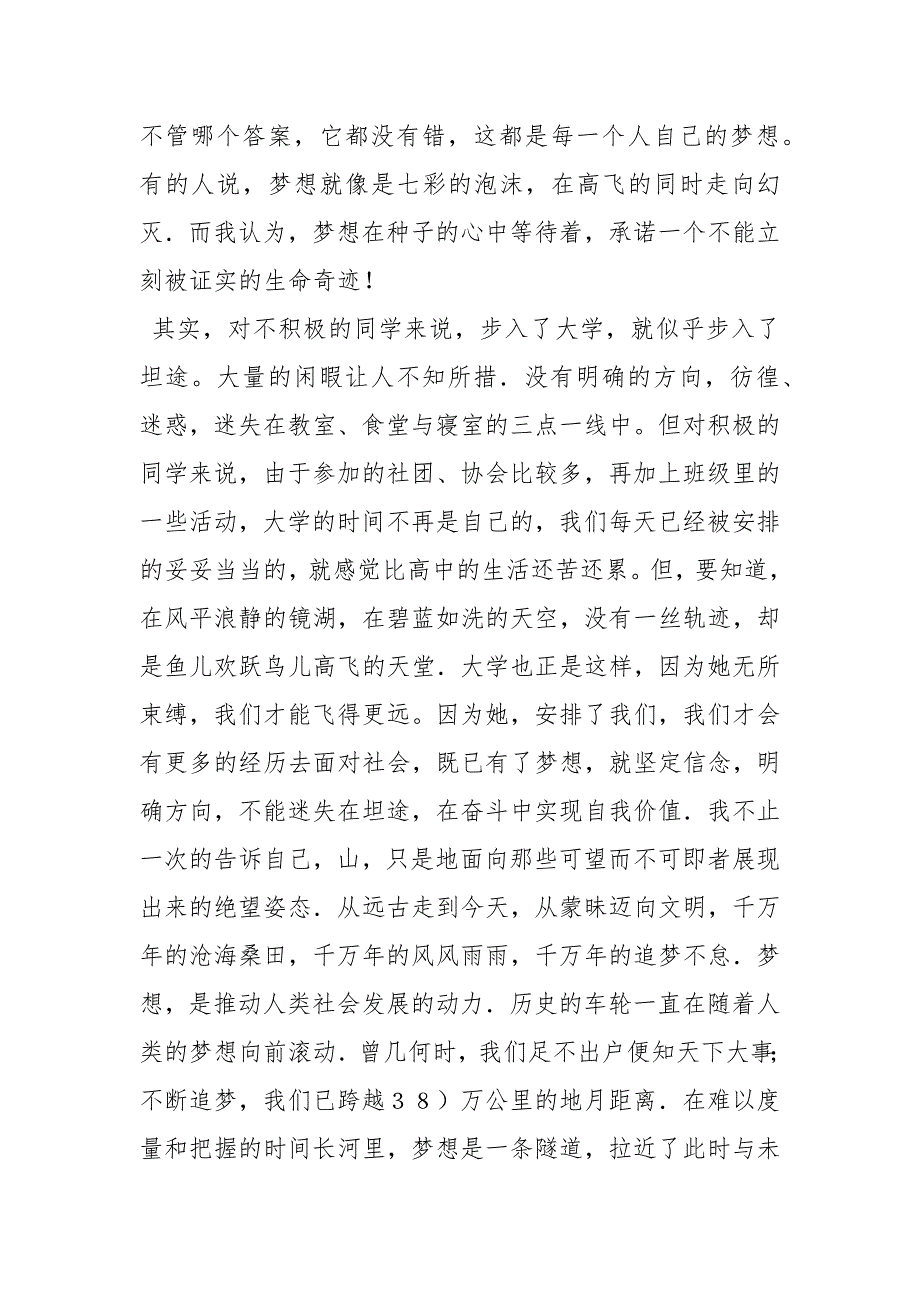 不管哪个答案，它都没有错，这都是每一个人自己的梦想。
有的人说，梦想就像是七彩的泡沫，在高飞的同时走向幻
灭．而我认为，梦想在种子的心中等待着，承诺一个不能立
刻被证实的生命奇迹！
其实，对不积极的同学来说，步入了大学，就似乎步入了
坦途。大量的闲暇让人不知所措．没有明确的方向，彷徨、
迷惑，迷失在教室、食堂与寝室的三点一线中。但对积极的
同学来说，由于参加的社团、协会比较多，再加上班级里的
一些活动，大学的时间不再是自己的，我们每天已经被安排
的妥妥当当的，就感觉比高中的生活还苦还累。但，要知道，
在风平浪静的镜湖，在碧蓝如洗的天空，没有一丝轨迹，却
是鱼儿欢跃鸟儿高飞的天堂．大学也正是这样，因为她无所
束缚，我们才能飞得更远。因为她，安排了我们，我们才会
有更多的经历去面对社会，既已有了梦想，就坚定信念，明
确方向，不能迷失在坦途，在奋斗中实现自我价值．我不止
一次的告诉自己，山，只是地面向那些可望而不可即者展现
出来的绝望姿态．从远古走到今天，从蒙昧迈向文明，千万
年的沧海桑田，千万年的风风雨雨，千万年的追梦不怠．梦
想，是推动人类社会发展的动力．历史的车轮一直在随着人
类的梦想向前滚动．曾几何时，我们足不出户便知天下大事；
不断追梦，我们已跨越３８）万公里的地月距离．在难以度
量和把握的时间长河里，梦想是一条隧道，拉近了此时与未